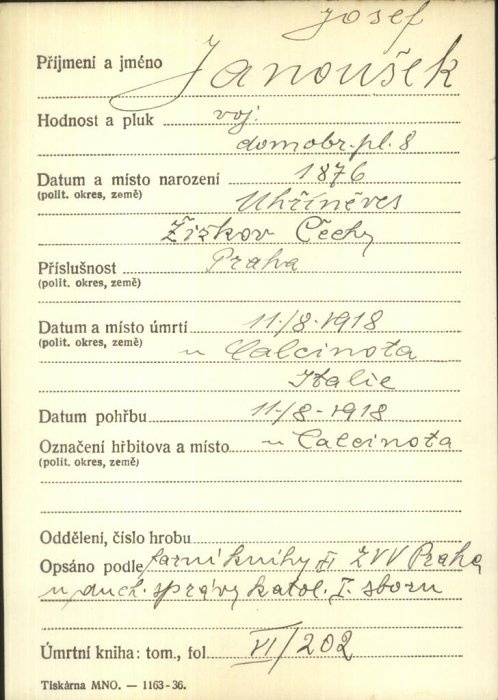 Josef
Příjmení a jméno Janoušek
Hodnost a pluk voj.
domobr. pl. 8
Datum a místo narození 1876
(polit. okres, země) Uhříněves
Žižkov Čechy
Příslušnost Praha
(polit. okres, země)
Datum a místo úmrtí 11./8.1918
(polit. okres, země) u Calcinota
Italie
Datum pohřbu 11./8-1918
Označení hřbitova a místo u Calcinota
(polit. okres, země)
Oddělení, číslo hrobu
Opsáno podle farní knihy ZVV Praha
duch. správy katol. I. sboru
Úmrtní kniha: tom., fol. VI/202
Tiskárna MNO. — 1163-36.